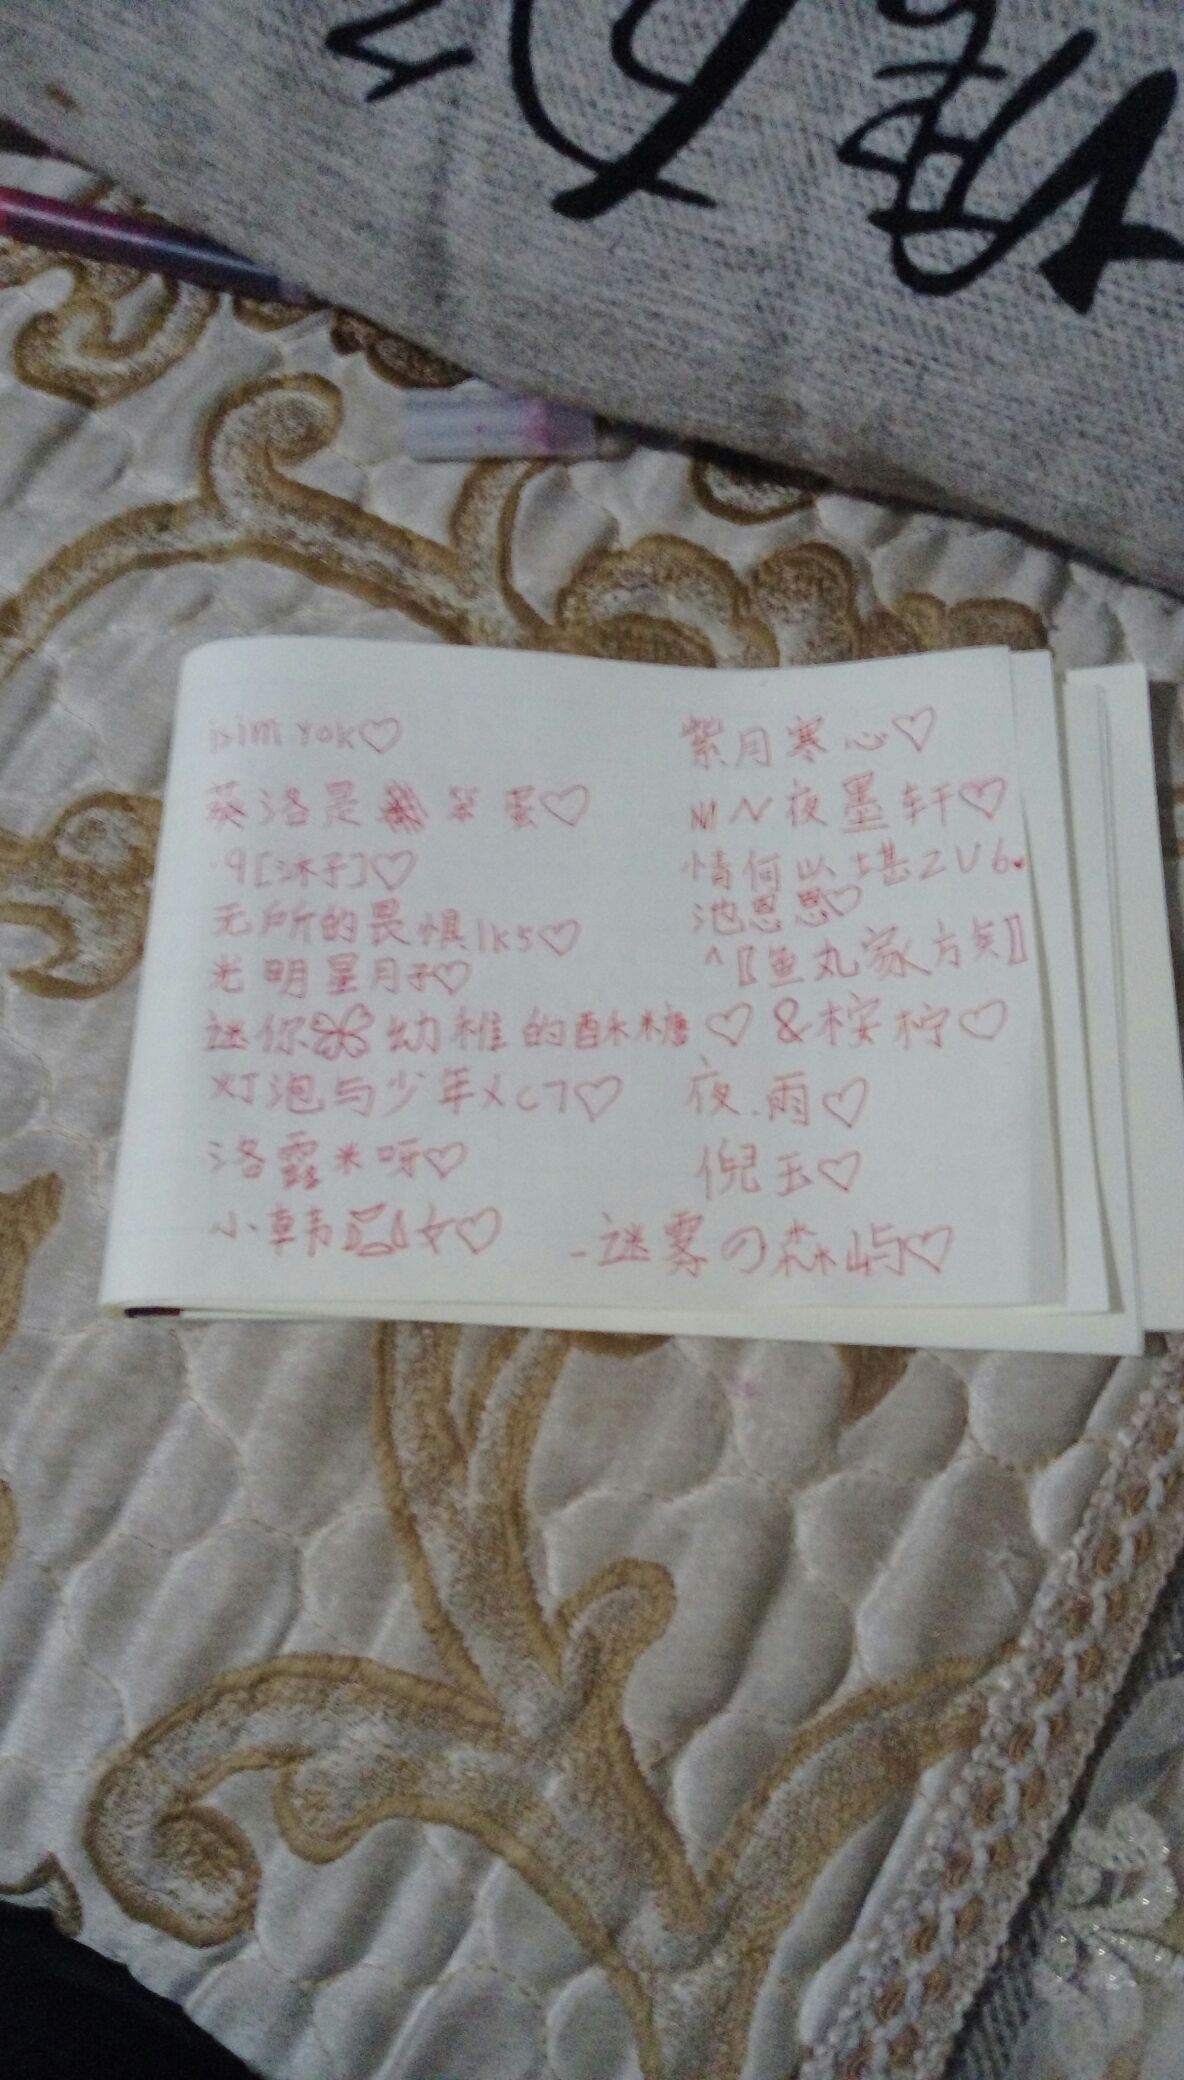 isim Yok♡
葵洛是笨蛋♡
·9[沐子]♡
无所的畏惧1k5♡
光明星月子♡
迷你幼稚的酥糖♡
灯泡与少年xc7♡
洛露米呀♡
小韩女♡
紫月寒心♡
MN夜墨轩♡
情何以堪ZU6♥
池恩恩♡
^〖鱼丸家方炅〗
&桉柠♡
夜.雨♡
倪玉♡
-谜雾の森屿♡